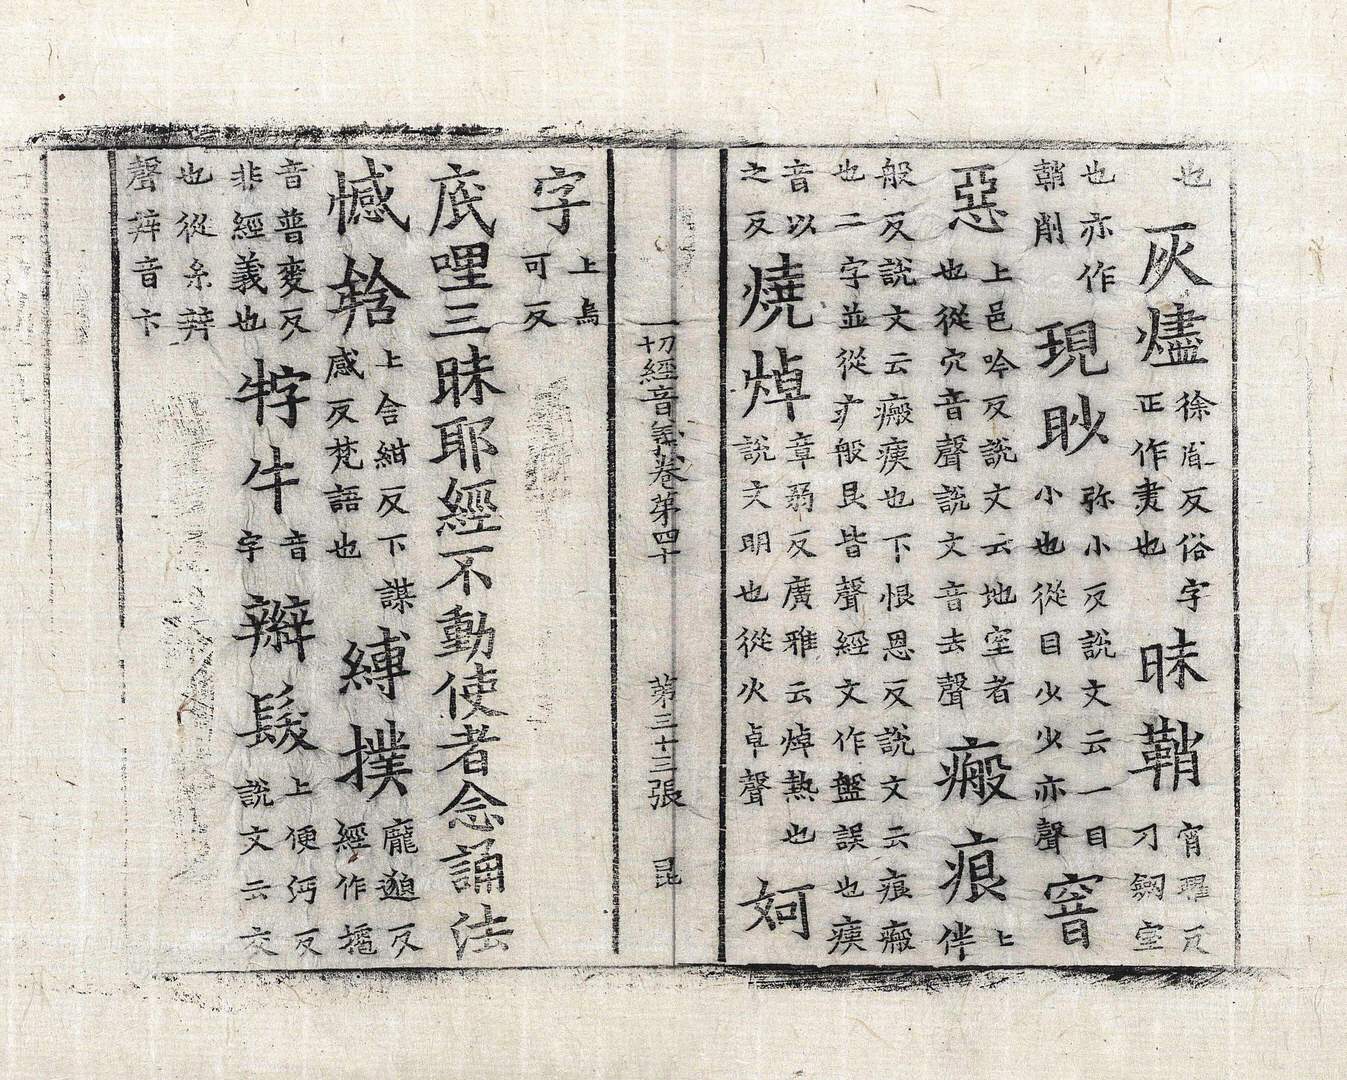 也
灰燼徐胤反俗字正作㶳也昧鞘宵曜反刀劔室
也亦作鞘削現眇弥小反說文云一目小也從目少少亦聲窨
惡上邑吟反說文云地室者也從穴音聲說文音去聲瘢痕上伴
般反說文云瘢痍也下恨恩反說文云痕瘢
也二字並從疒般艮皆聲經文作盤誤也痍
音以之反燒焯章弱反廣雅云焯熱也說文明也從火卓聲妸
一切經音義卷第四十 第三十三張 昆
字上烏可反
底哩三昧耶經不動使者念誦法
憾上含紺反下謀感反梵語也縛撲龐邈反經作
音普麥反非經義也牸牛音字辮髮上便沔反說文云交
也從糸辡
聲辡音卞